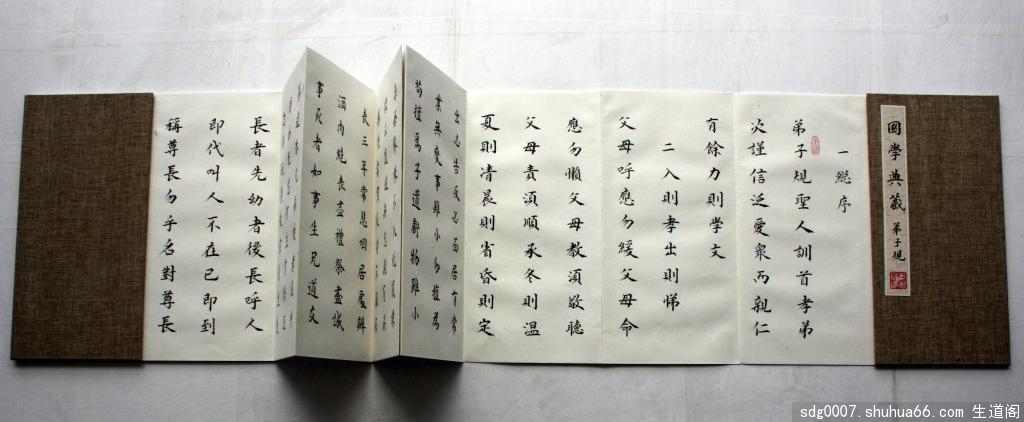 國學典藏 弟子規
一總序
弟子規聖人訓首孝弟
次謹信泛愛衆而親仁
有餘力則學文
二入則孝出則悌
父母呼應勿緩父母命
應勿懶父母教須敬聽
父母責須順承冬則温
夏則凊晨則省昏則定
出必告反必面居有常
業無變事雖小勿擅為
苟擅為子道虧物雖小
喪三年常悲咽居處辦
酒肉絶喪盡禮祭盡誠
事死者如事生兄道友
長者先幼者後長呼人
即代叫人不在己即到
稱尊長勿乎名對尊長
sdg0007.shuhua66.com 生道阁